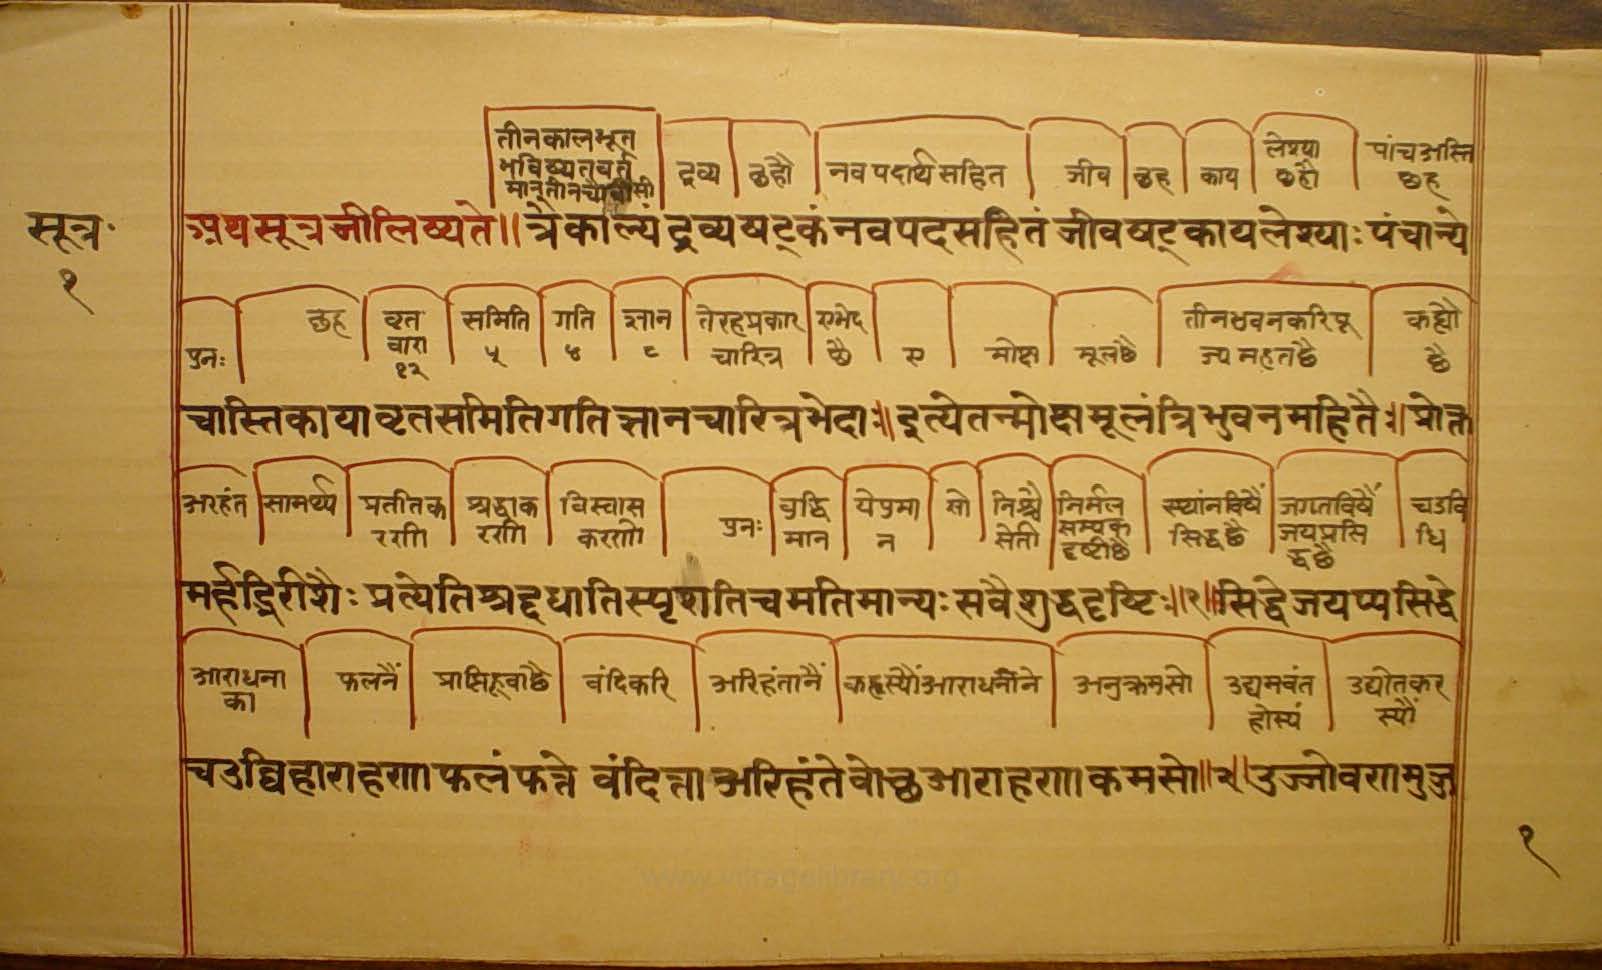 तीनकालभूत
भविष्यतवर्त
मानतीनचौवीसी
द्रव्य छहौ नवपदार्थसहित जीव छह काय लेश्या छहौ पांचअस्ति छह
सूत्र
अथसूत्रजीलिष्यते॥ त्रैकाल्यंद्रव्यषट्कंनवपदसहितंजीवषट्कायलेश्याः पंचान्ये
१
पुनः छह वृत वारा १२ समिति ५ गति ४ ज्ञान ८ तेरहप्रकार चारित्र एभेद छै ए मोक्ष मूलछै तीनभवनकरिपू ज्य महतछै कह्यौ छै
चास्तिकायावृतसमितिगतिज्ञानचारित्रभेदाः॥ इत्येतन्मोक्षमूलंत्रिभुवनमहितैः॥ प्रोक्त
अरहंत सामर्थ्य प्रतीतक रणी श्रद्धाक रणी विस्वास करणो पुनः वुद्धि मान येपुमा न सो निश्चै सेती निर्मल सम्यक दृष्टीछै स्थांनविषैं सिद्धछै जगतविषैं जयप्रसि द्धछै चउवि धि
मर्हद्भिरीशैः प्रत्येतिश्रद्दधातिस्पृशतिचमतिमान्यः सवैशुद्धदृष्टिः॥१॥सिद्धेजयप्यसिद्धे
आराधना का फलनैं प्राप्तिहूवाछै वंदिकरि अरिहंतानैं कहूस्यौंआराधनाने अनुक्रमसो उद्यमवंत होस्यं उद्योतकर स्यौं
चउव्विहाराहणाफलंफत्ते वंदित्ताअरिहंतेवोच्छआराहणाकमसो॥२॥उज्जोवणमुज
१
www.vitragelibrary.org